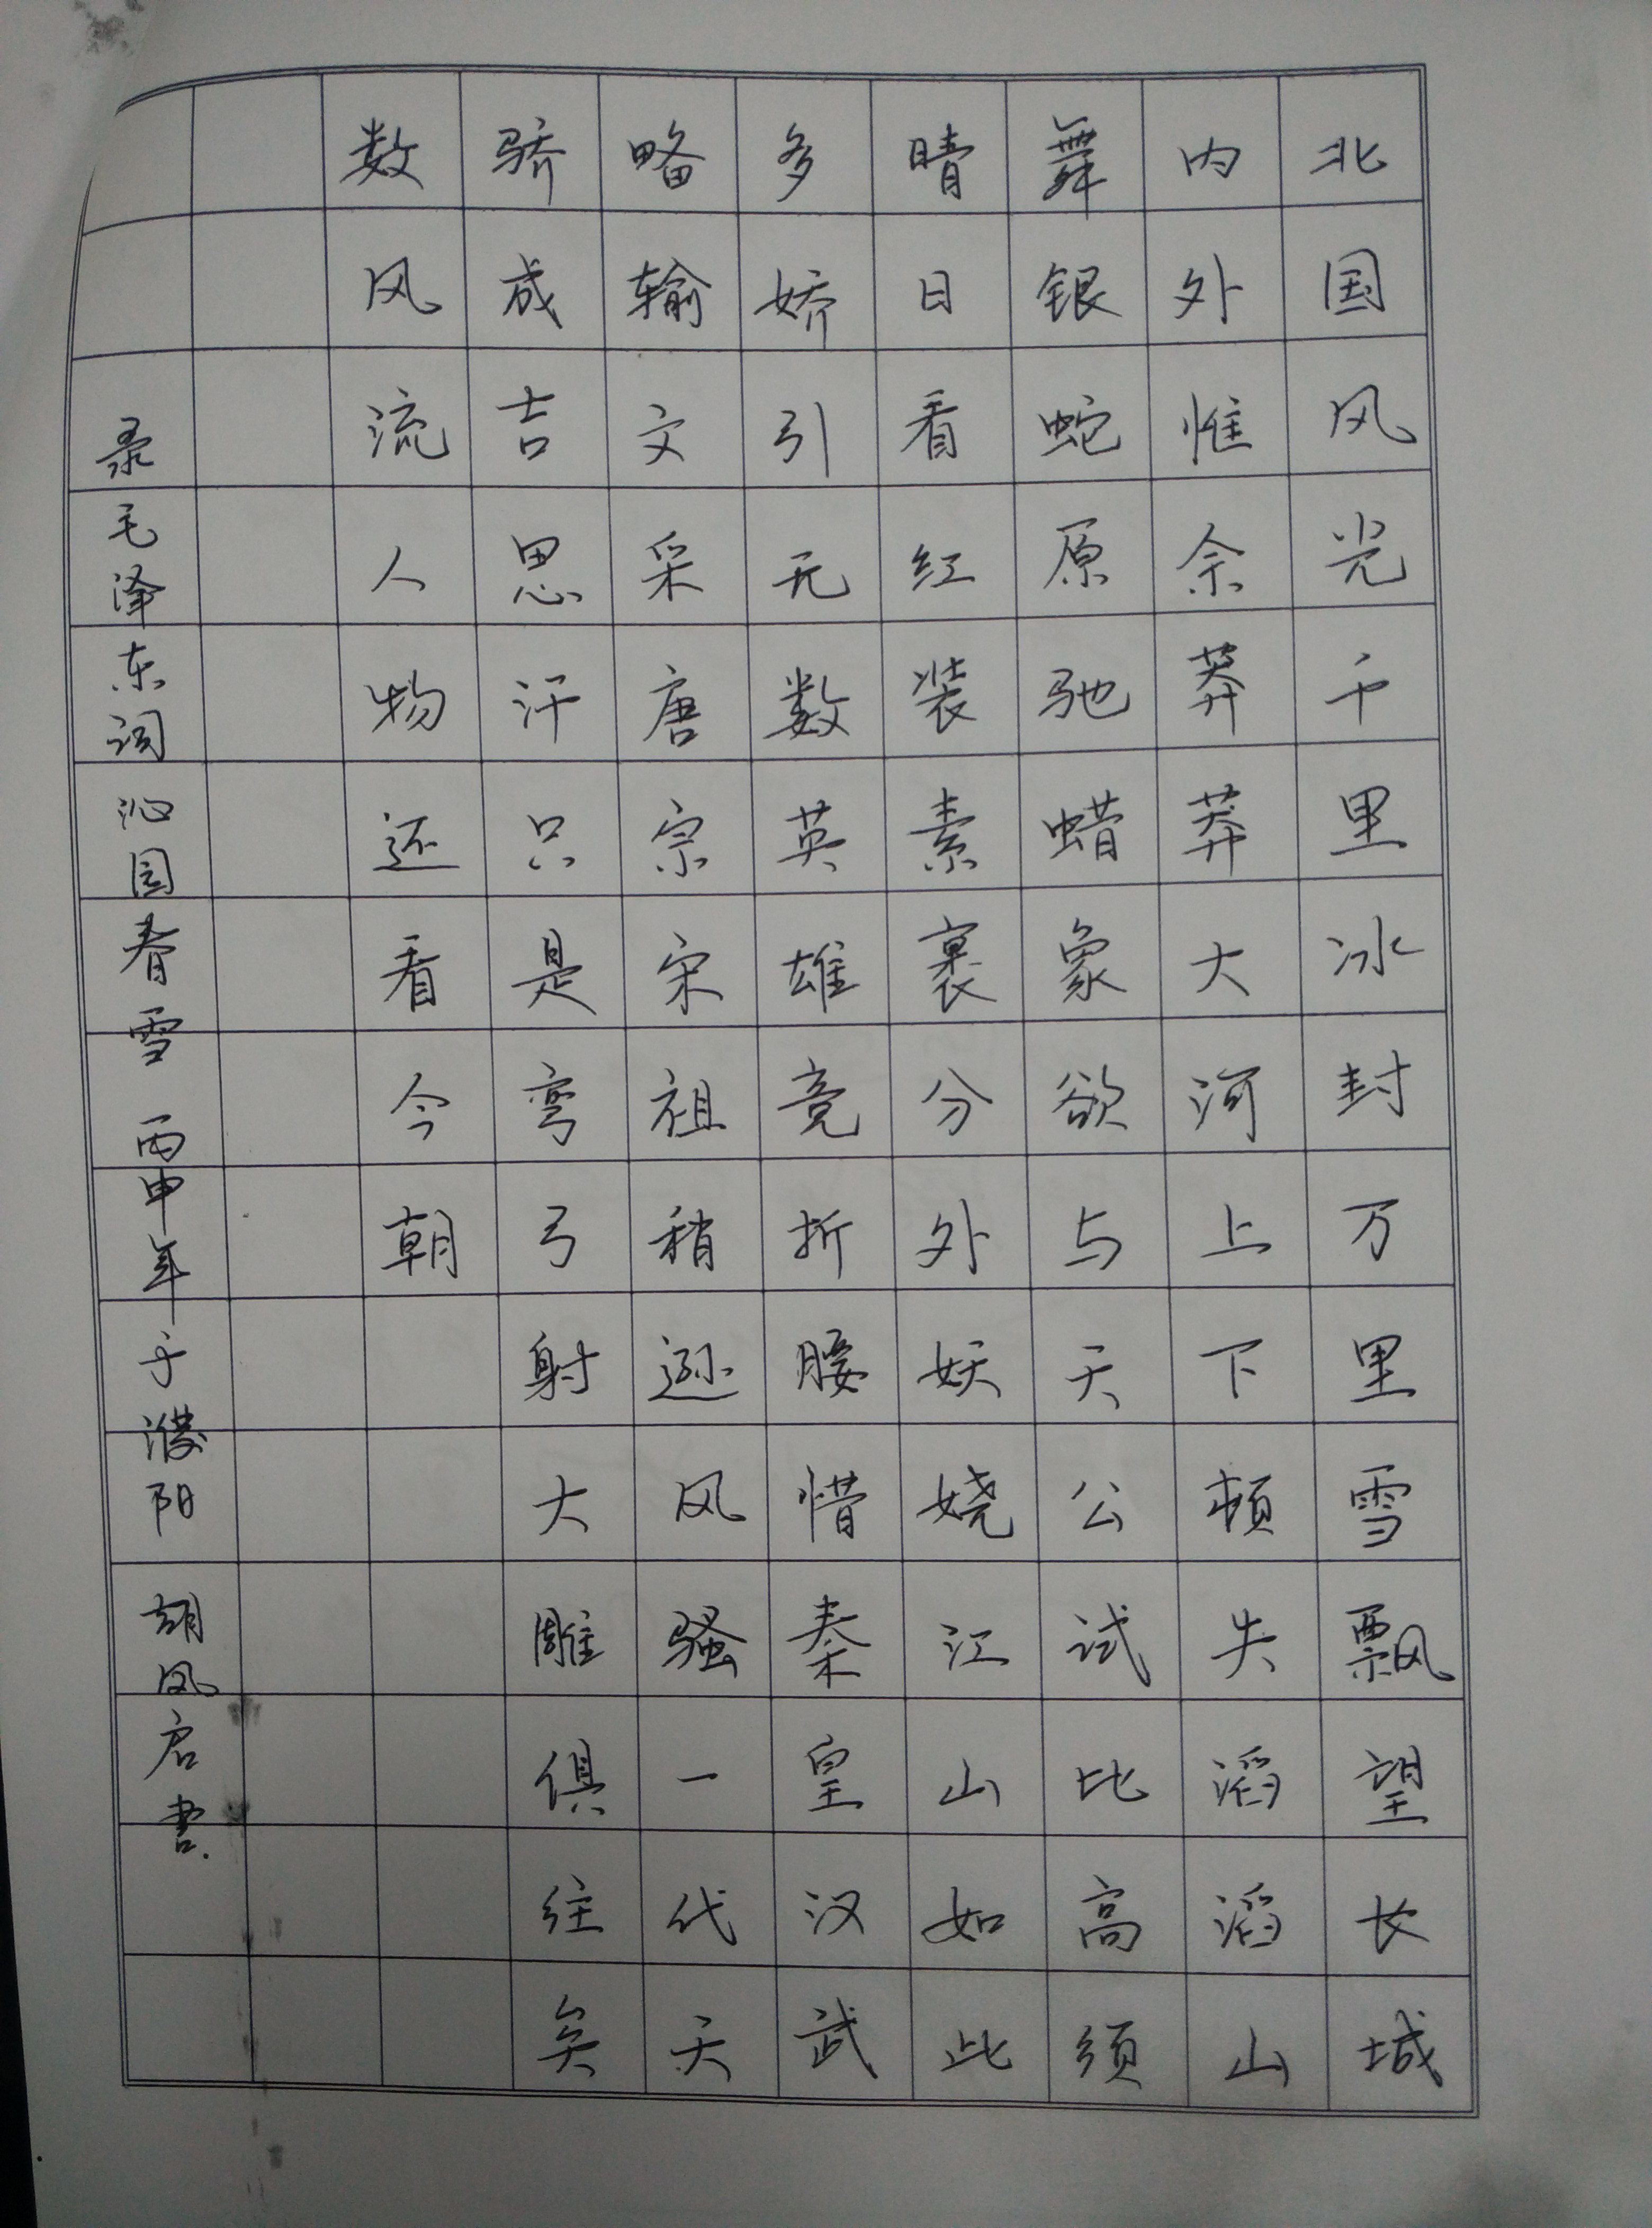 北国风光千里冰封万里雪飘望长城
内外惟余莽莽大河上下顿失滔滔山
舞银蛇原驰蜡象欲与天公试比高须
晴日看红装素裹分外妖娆江山如此
多娇引无数英雄竞折腰惜秦皇汉武
略输文采唐宗宋祖稍逊风骚一代天
骄成吉思汗只是弯弓射大雕俱往矣
数风流人物还看今朝
录毛泽东词沁园春雪 丙申年于濮阳 胡风启書